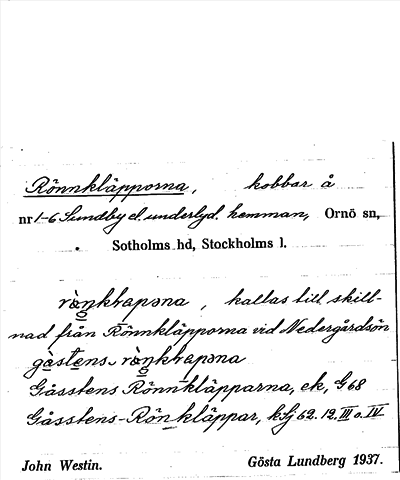 Rönnkläpporna, kobbar å
nr 1-6 Sundby d. underlyd. hemman, Ornö sn,
Sotholms hd, Stockholms l.
kallas till skill-
nad från Rönnkläpporna vid Nedergårdsön
Gåsstens Rönnkläpparna, ek, G 68
Gåsstens-Rönnkläppar, kSj 62.12. III o. IV
John Westin. Gösta Lundberg 1937.